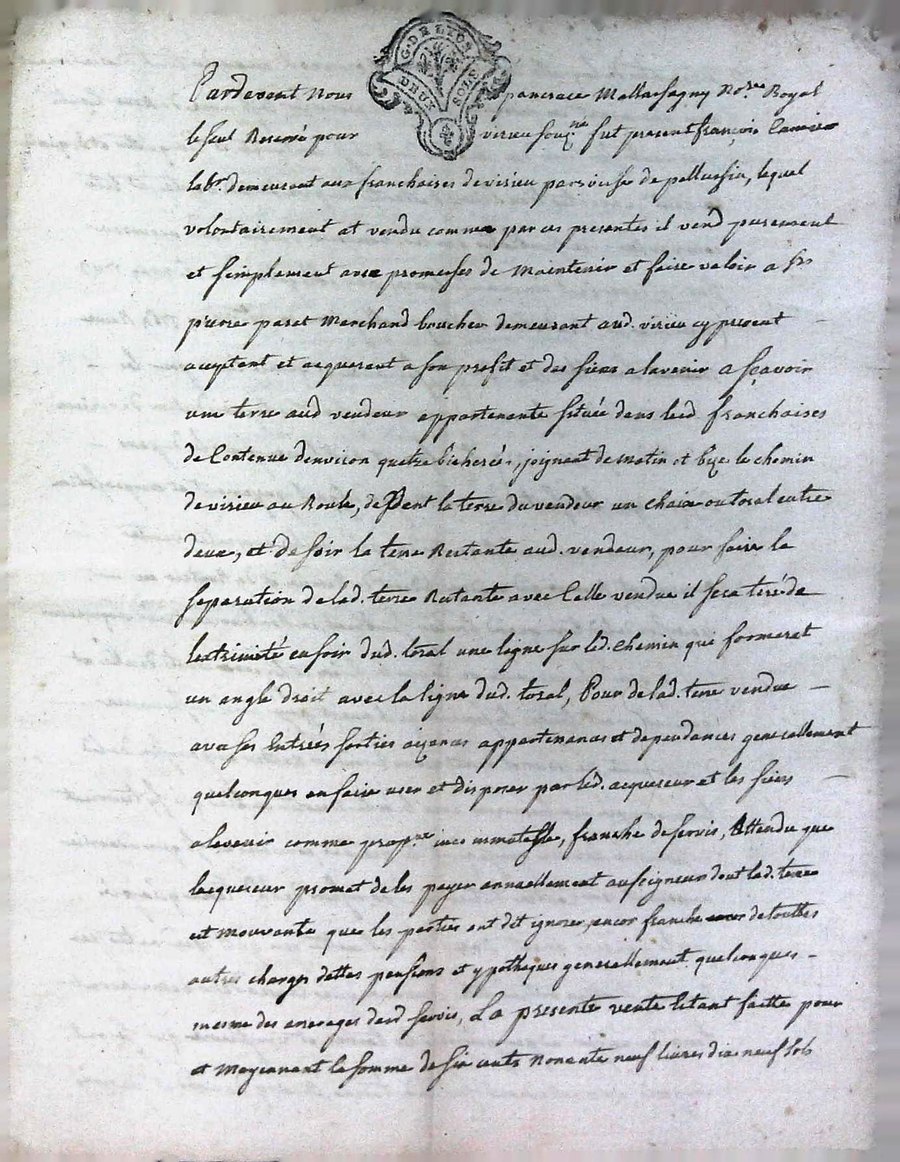 G. DE LYON
DEUX SOLS
Pardevant Nous pancrace Mallassagny No.re Royal
le seul Reservé pour virieu souq.né fut present françois
lab.r demeurant aux franchises de virieu paroisse de pellussin, lequel
volontairement at vendu comme par ces presentes il vend purement
et simplement avec promesses de Maintenir et faire valoir a s.r
pierre paret Marchand boucher demeurant aud. virieu cy present
aceptant et aquerant a son profit et des siens a lavenir a sçavoir
une terre aud vendeur appartenante située dans lesd. franchaises
de Contenue denviron quatre bicherés, joignant de matin et bize le chemin
de virieu au Roule, de vent la terre du vendeur un chaix ou toral entre
deux, et de soir la terre Restante aud. vendeur, pour faire la
separation de lad. terre Restante avec Celle vendue il sera tiré de
lextrimité en soir dud. toral une ligne sur led. chemin qui formerat
un angle droit avec la ligne dud. toral, Pour de lad. terre vendue
avec ses Entrées sorties aizances appartenances et dependances generallement
quelconques en faire user et disposer par led. aquereur et les siens
alavenir comme, franche de servis, Attendu que
laquereur promet de les payer annuellement au seigneur dont lad. terre
est Mouvante que les parties ont dit ignorer, encor franche de touttes
autres charges dettes pensions et ypotheques generallement quelconques
mesme des arrerages desd servis, La presente vente Etant faitte pour
et Moyenant le somme de six cents Nonante neuf livres dix neuf sols